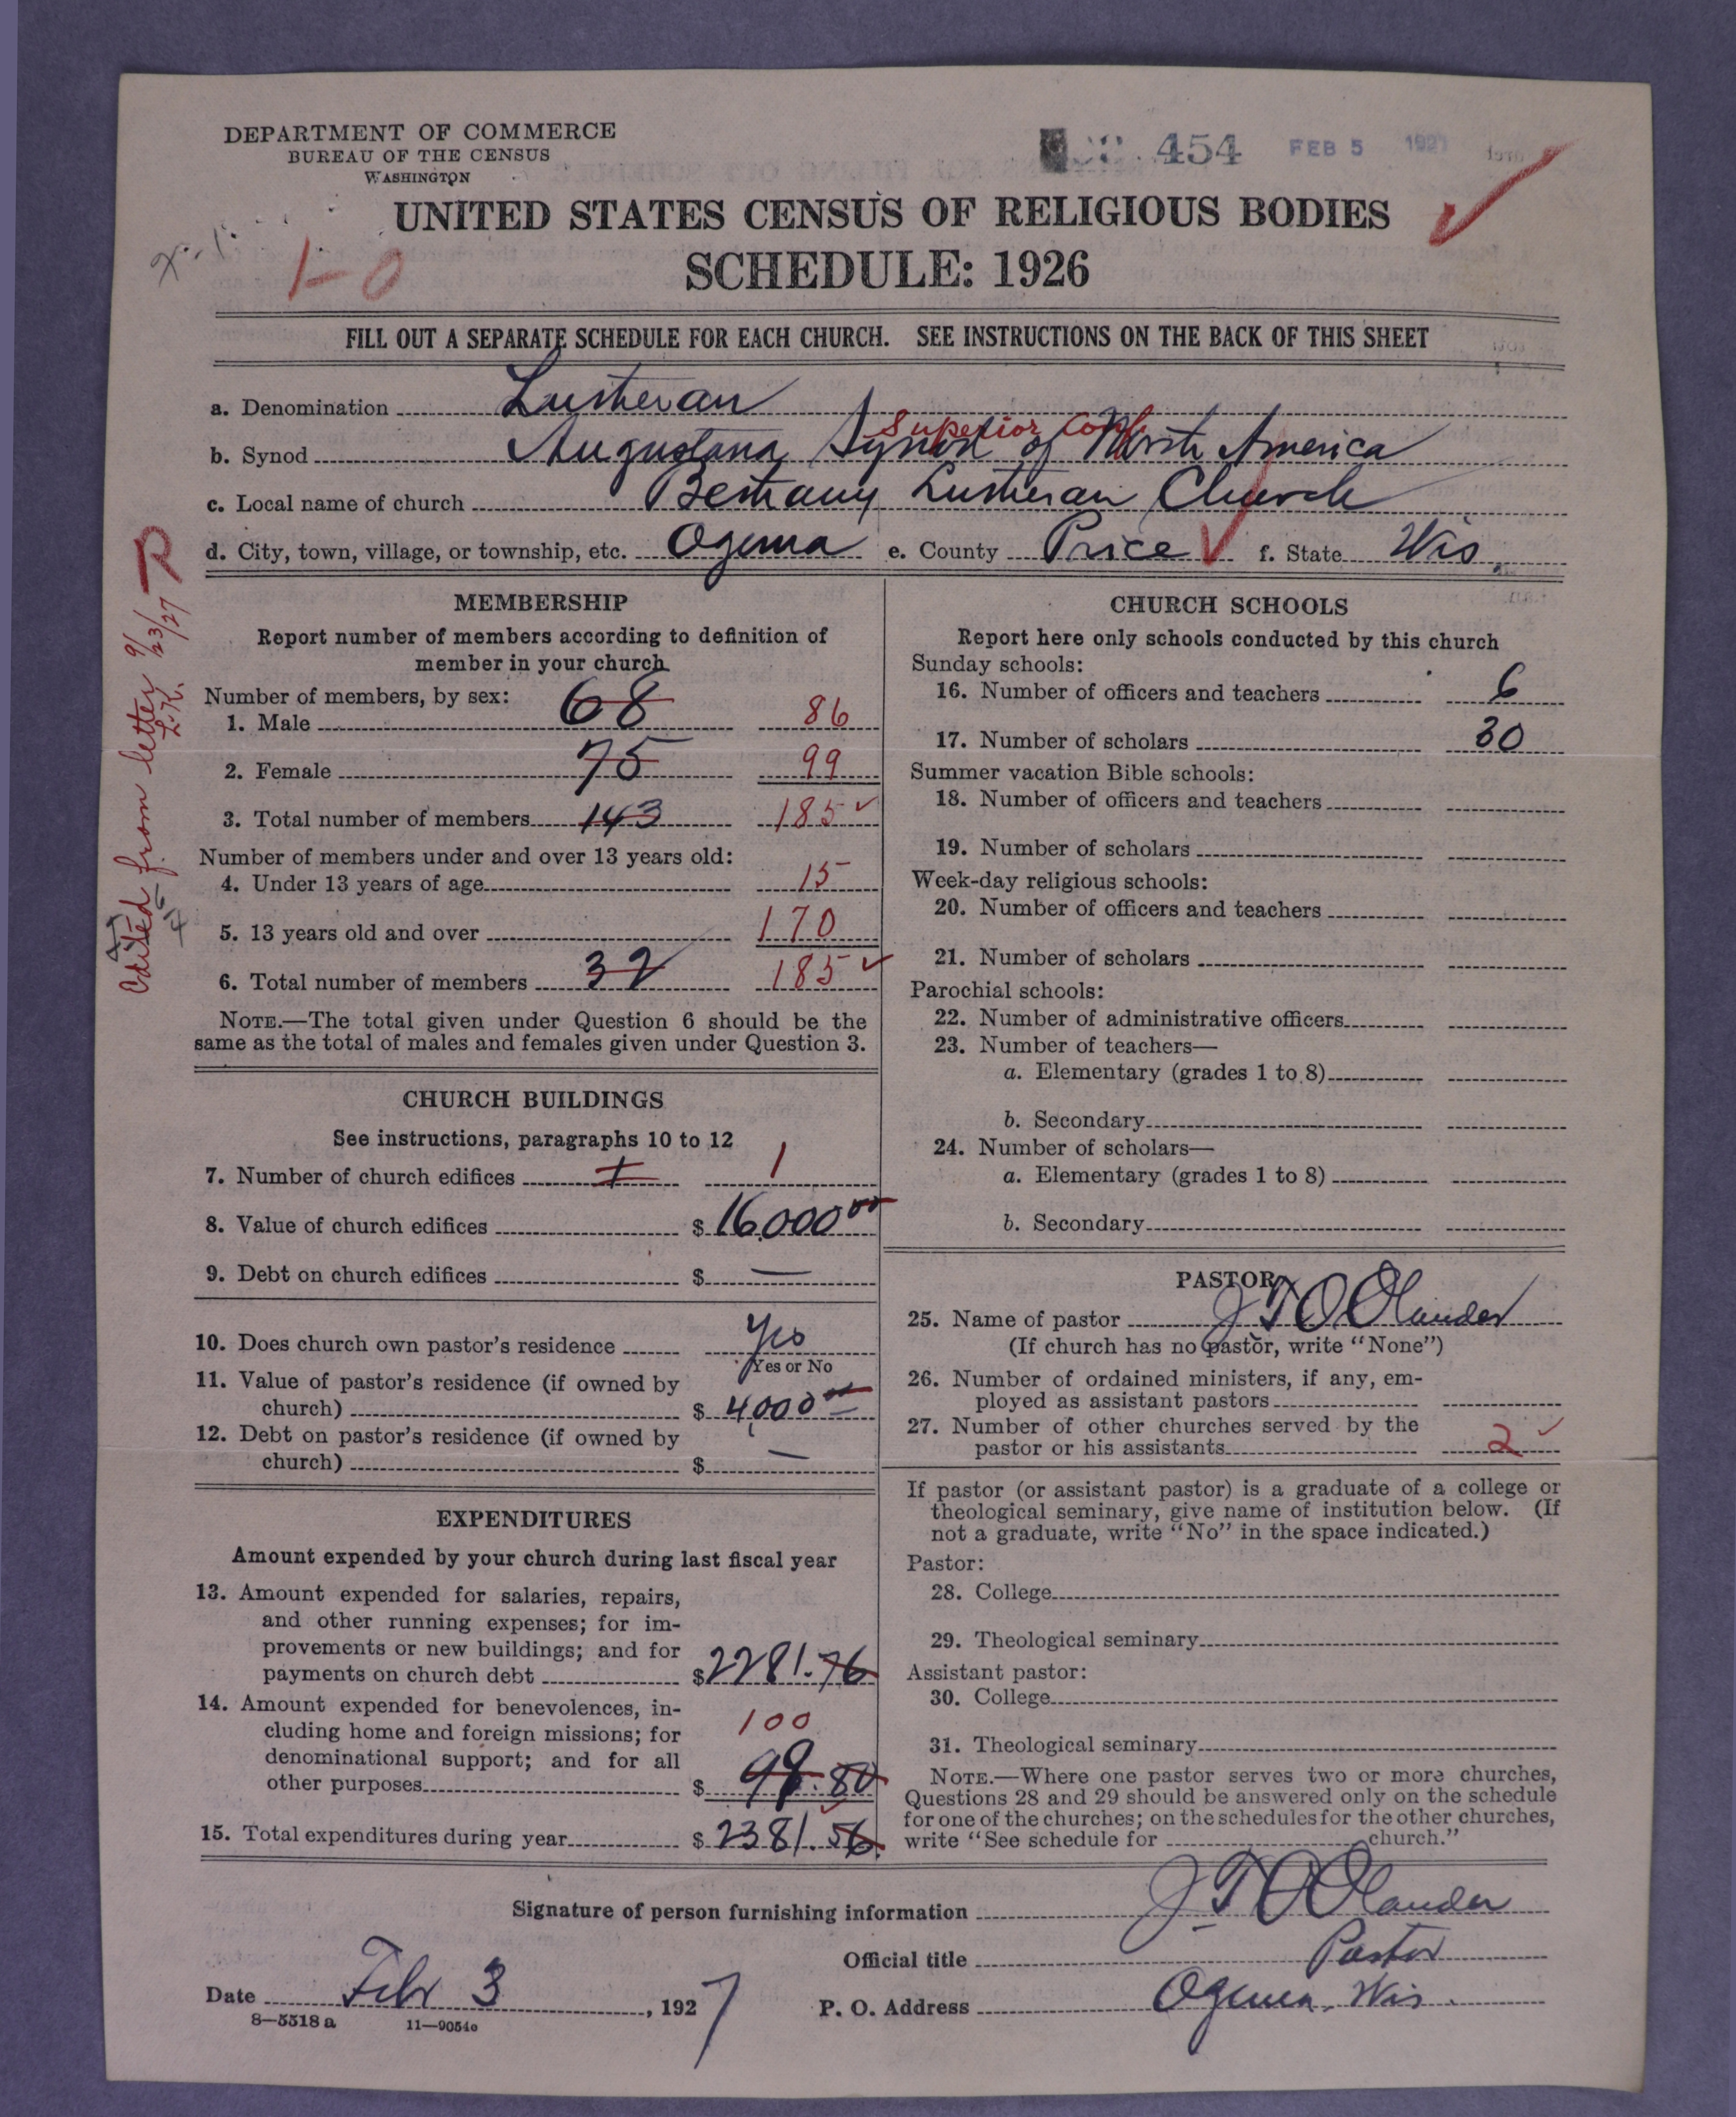 DEPARTMENT OF COMMERCE
BUREAU OF THE CENSUS
WASHINGTON
454 FEB 5 1927
UNITED STATES CENSUS OF RELIGIOUS BODIES
1-0
SCHEDULE: 1926
FILL OUT A SEPARATE SCHEDULE FOR EACH CHURCH. SEE INSTRUCTIONS ON THE BACK OF THIS SHEET
a. Denomination Lutheran
Superior Conf
b. Synod Augustana Synod of North America
c. Local name of church Bethany Lutheran Church
d. City, town, village, or township, etc. Ogema e. County Price f. State Wis.
Edited from letter 9/23/27 R
L.K.
MEMBERSHIP
Report number of members according to definition of
member in your church.
Number of members, by sex:
1. Male 68 86
2. Female 75 99
3. Total number of members 143 185
Number of members under and over 13 years old:
4. Under 13 years of age 15
5. 13 years old and over 170
6. Total number of members 32 185
NOTE.—The total given under Question 6 should be the
same as the total of males and females given under Question 3.
CHURCH BUILDINGS
See instructions, paragraphs 10 to 12
7. Number of church edifices 1 1
8. Value of church edifices $ 16,000 00
9. Debt on church edifices $ —
10. Does church own pastor's residence Yes
Yes or No
11. Value of pastor's residence (if owned by
church) $ 4,000 00
12. Debt on pastor's residence (if owned by
church) $ —
EXPENDITURES
Amount expended by your church during last fiscal year
13. Amount expended for salaries, repairs,
and other running expenses; for im-
provements or new buildings; and for
payments on church debt $ 2281.76
14. Amount expended for benevolences, in-
cluding home and foreign missions; for
100
denominational support; and for all
other purposes $ 99.80
15. Total expenditures during year $ 2381.56
CHURCH SCHOOLS
Report here only schools conducted by this church
Sunday schools:
16. Number of officers and teachers 6
17. Number of scholars 30
Summer vacation Bible schools:
18. Number of officers and teachers
19. Number of scholars
Week-day religious schools:
20. Number of officers and teachers
21. Number of scholars
Parochial schools:
22. Number of administrative officers
23. Number of teachers—
a. Elementary (grades 1 to 8)
b. Secondary
24. Number of scholars—
a. Elementary (grades 1 to 8)
b. Secondary
PASTOR
25. Name of pastor J T O Olander
(If church has no pastor, write "None")
26. Number of ordained ministers, if any, em-
ployed as assistant pastors
27. Number of other churches served by the
pastor or his assistants 2
If pastor (or assistant pastor) is a graduate of a college or
theological seminary, give name of institution below. (If
not a graduate, write "No" in the space indicated.)
Pastor:
28. College
29. Theological seminary
Assistant pastor:
30. College
31. Theological seminary
NOTE.—Where one pastor serves two or more churches,
Questions 28 and 29 should be answered only on the schedule
for one of the churches; on the schedules for the other churches,
write "See schedule for church."
Signature of person furnishing information J T O Olander
Official title Pastor
Date Febr 3, 1927 P. O. Address Ogema, Wis.
8—5518 a 11—9054c